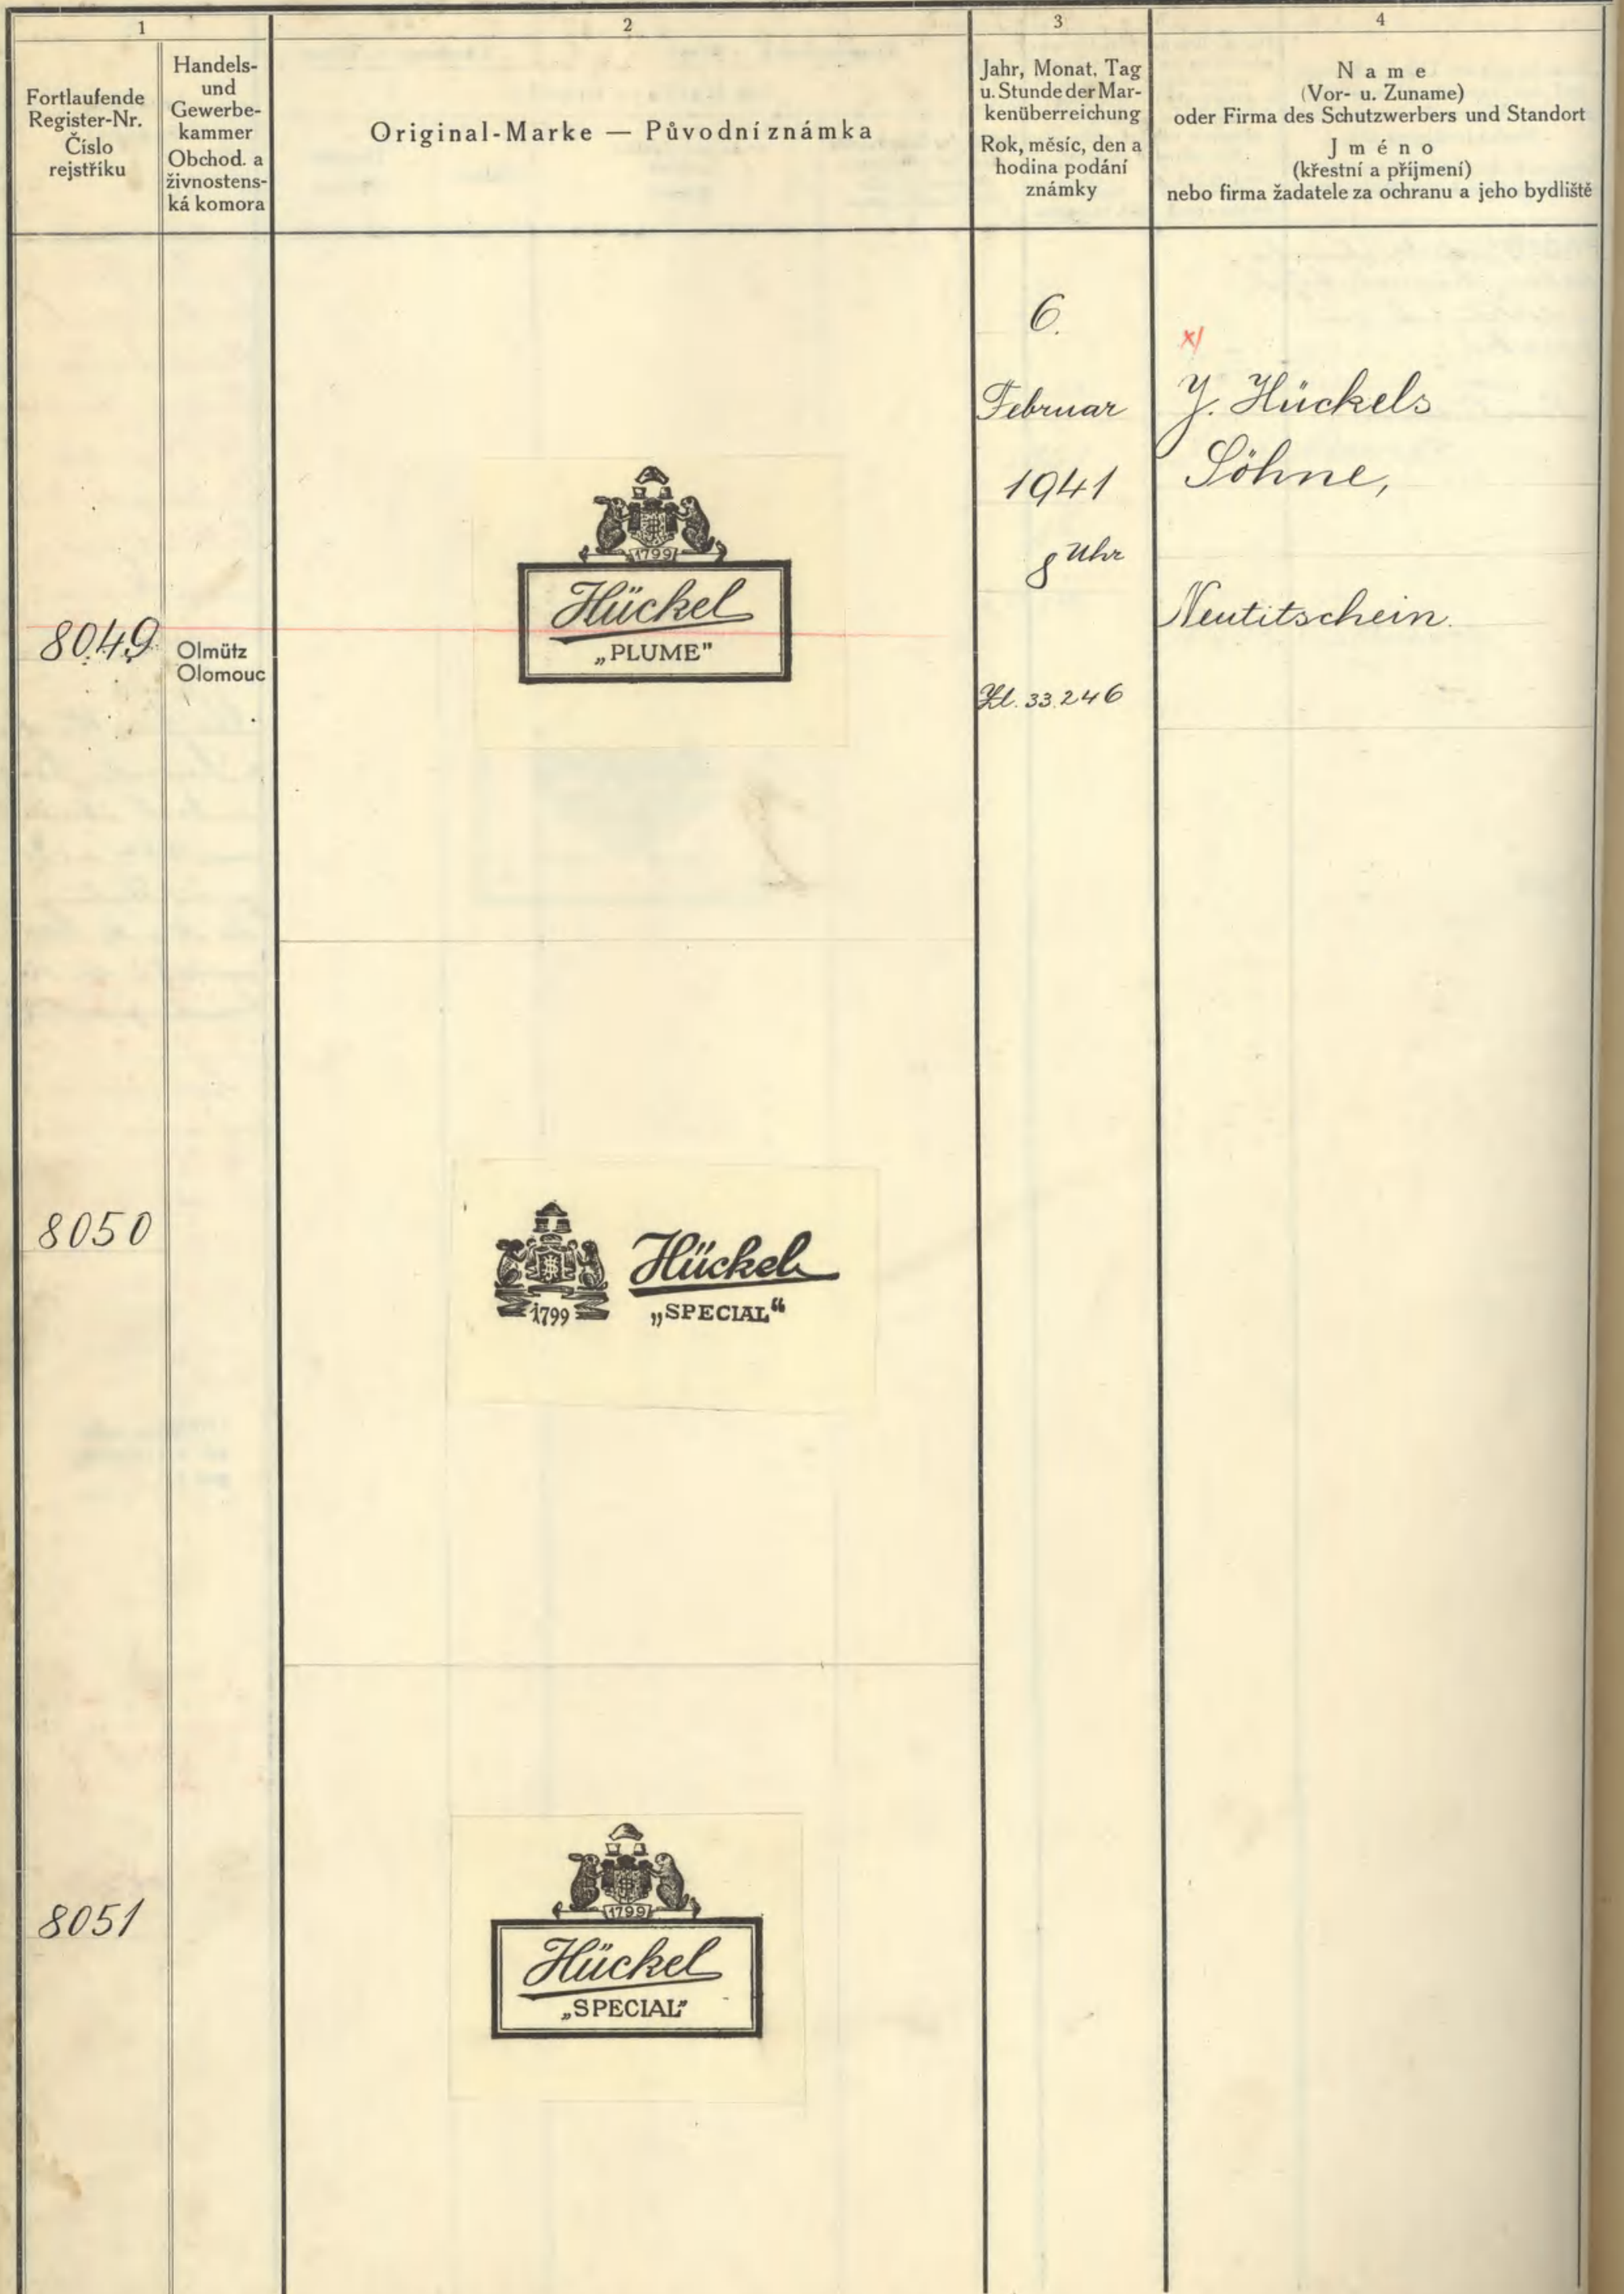 1
2
3
4
Fortlaufende
Register-Nr.
Číslo
rejstříku
Handels-
und
Gewerbe-
kammer
Obchod. a
živnostens-
ká komora
Original-Marke — Původní známka
Jahr, Monat, Tag
u. Stunde der Mar-
kenüberreichung
Rok, měsíc, den a
hodina podání
známky
Name
(Vor- u. Zuname)
oder Firma des Schutzwerbers und Standort
Jméno
(křestní a příjmení)
nebo firma žadatele za ochranu a jeho bydliště
8049
Olmütz
Olomouc
1799
Hückel
„PLUME"
6.
Februar
1941
8 Uhr
Zl. 33.246
x/
J. Hückels
Söhne,
Neutitschein.
8050
1799
Hückel
„SPECIAL“
8051
1799
Hückel
„SPECIAL"